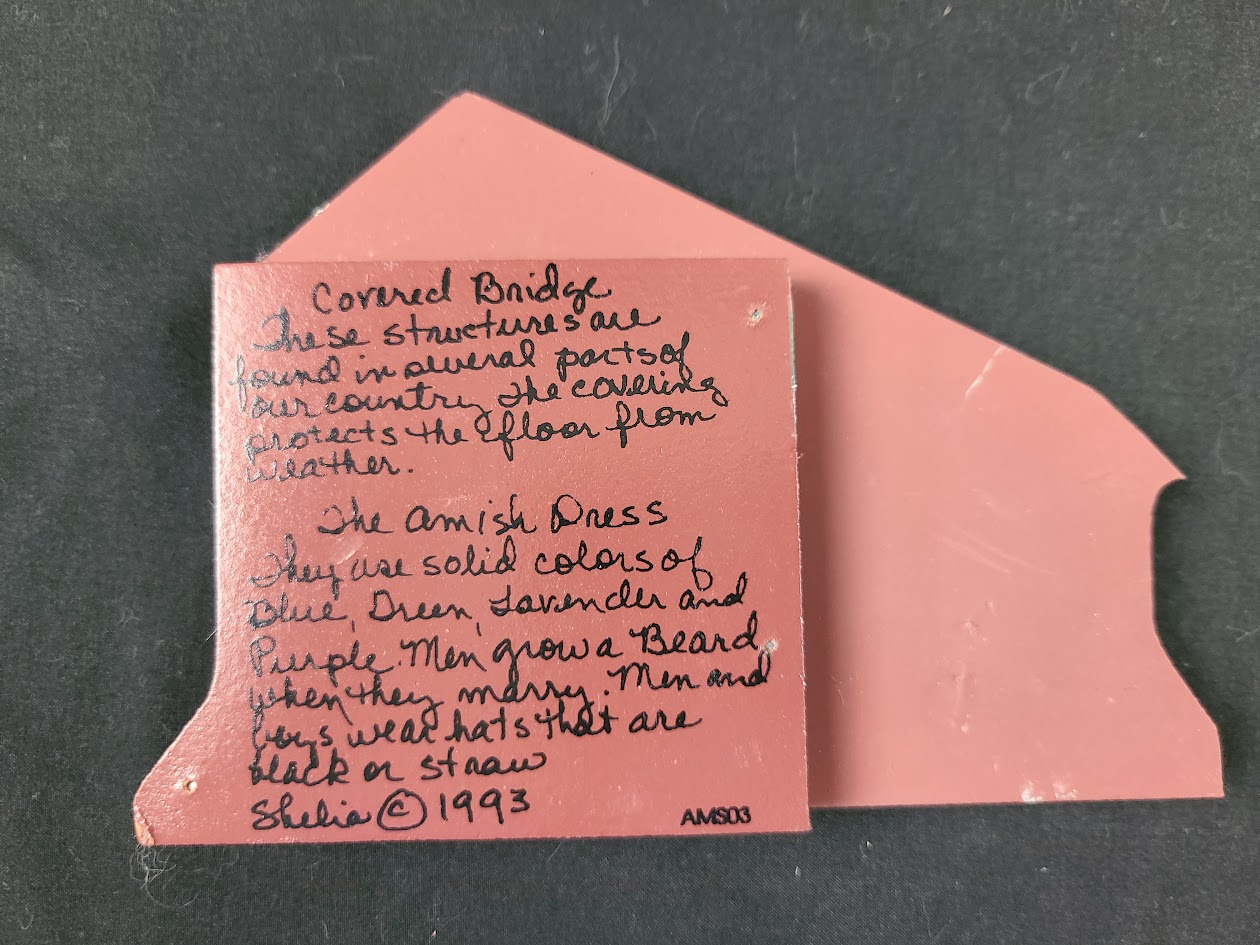 Covered Bridge
These structures are
found in several parts of
our country The covering
protects the floor from
weather.
The Amish Dress
They use solid colors of
Blue, Green, Lavender and
Purple. Men grow a Beard
when they marry. Men and
boys wear hats that are
black or straw
Shelia © 1993
AMS03